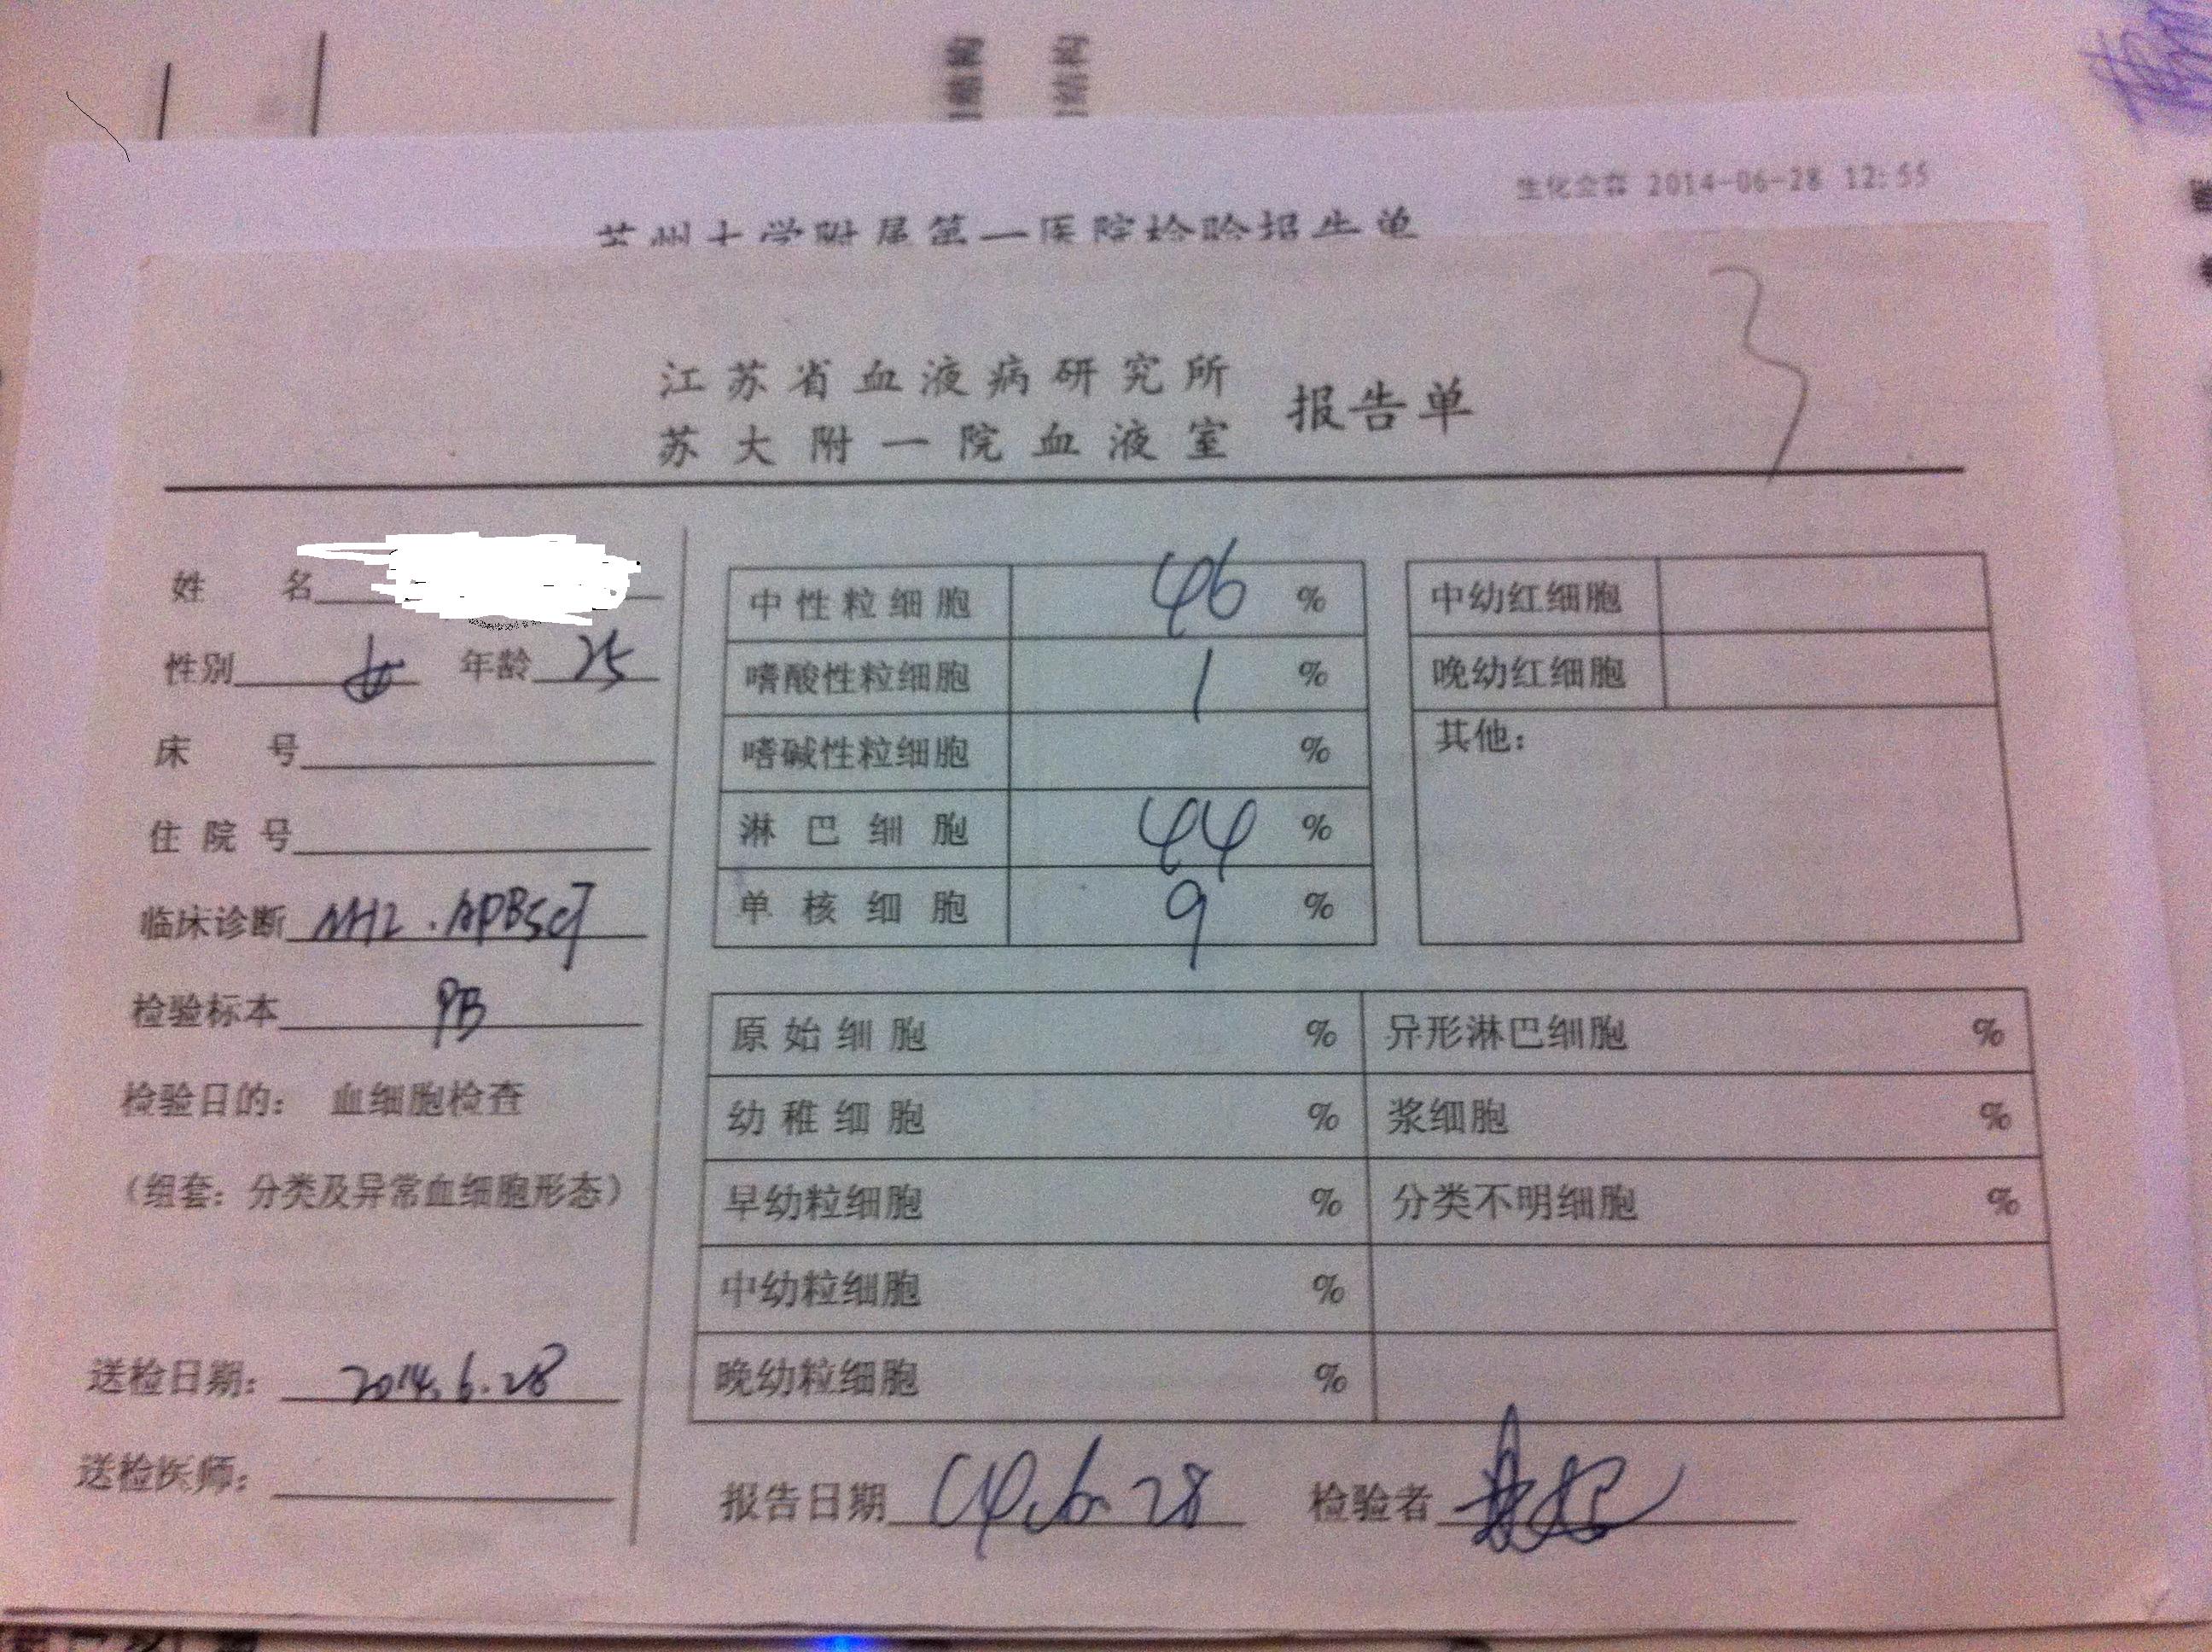 生化全套 2014-06-28 12:55
苏州大学附属第一医院检验报告单
江苏省血液病研究所
苏大附一院血液室
报告单
姓 名
性别 女 年龄 25
床 号
住院号
临床诊断 NHL.APBSCT
检验标本 PB
检验目的： 血细胞检查
（组套：分类及异常血细胞形态）
送检日期： 2014.6.28
送检医师：
中性粒细胞 46 %
嗜酸性粒细胞 1 %
嗜碱性粒细胞 %
淋巴细胞 44 %
单核细胞 9 %
中幼红细胞
晚幼红细胞
其他：
原始细胞 % 异形淋巴细胞 %
幼稚细胞 % 浆细胞 %
早幼粒细胞 % 分类不明细胞 %
中幼粒细胞 %
晚幼粒细胞 %
报告日期 14.6.28 检验者